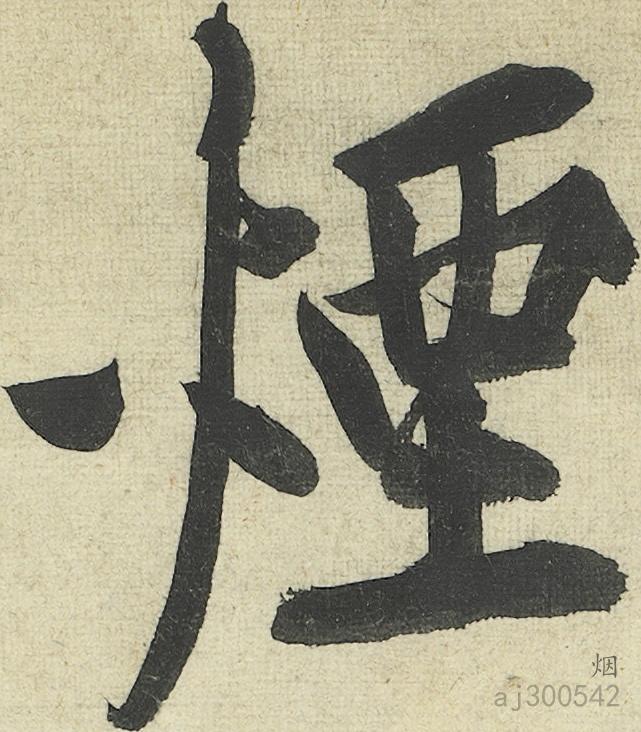 煙
烟
aj300542